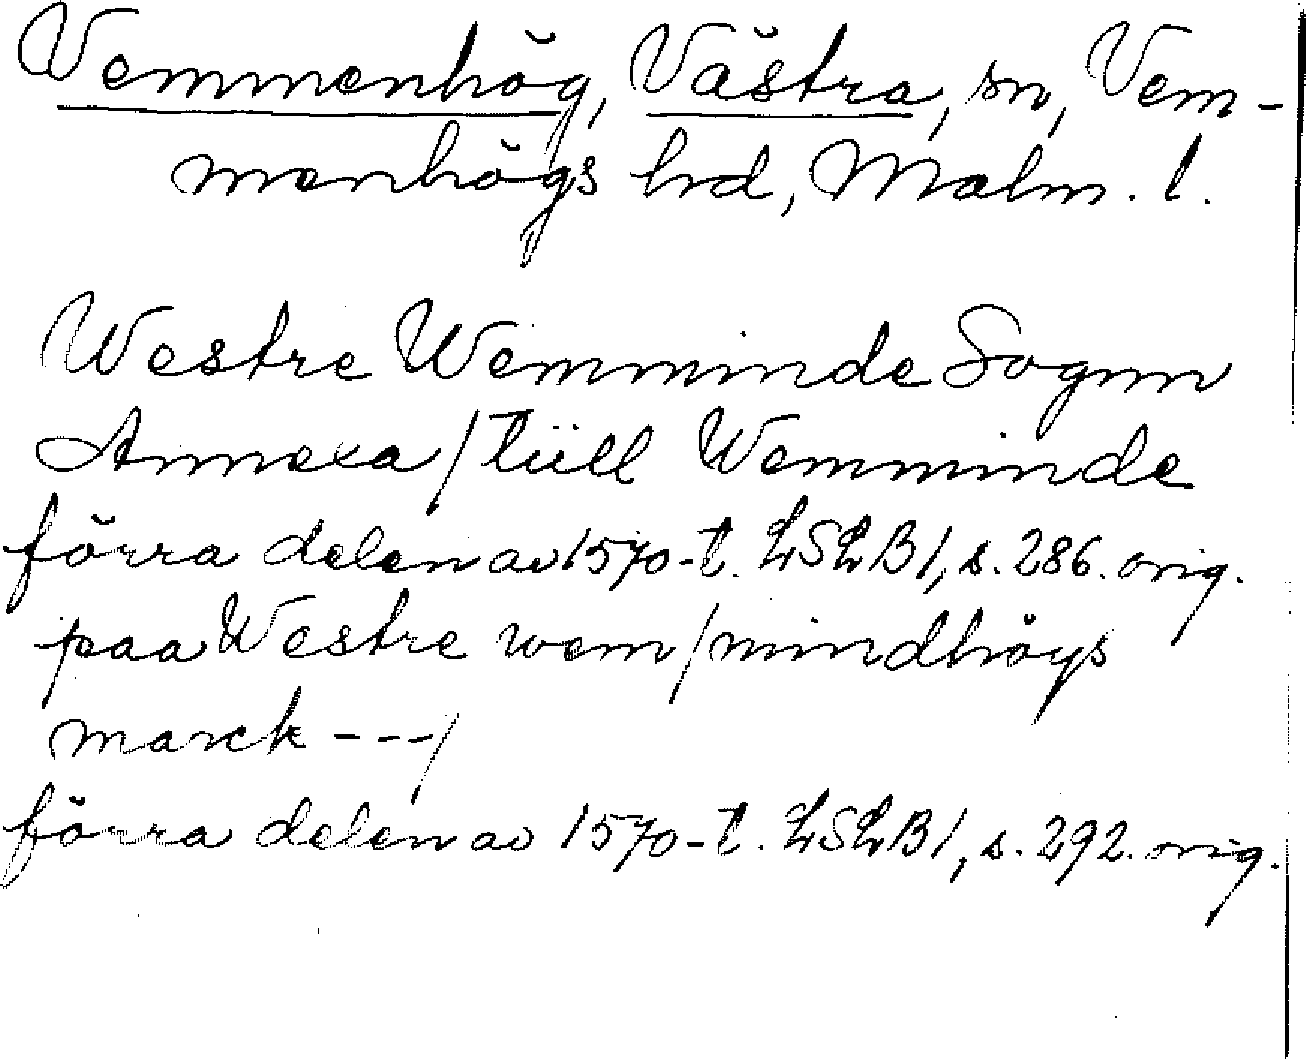 Vemmenhög, Västra, sn, Vem-
menhögs hd, Malm. l.
Westre Wemminde Sognn
Annexa/tüll Wemminde
förra delen av 1570-t. LSLB1, s. 286. orig.
paa Westre wem/mindhöys
marck ---/
förra delen av 1570-t. LSLB1, s. 292. orig.